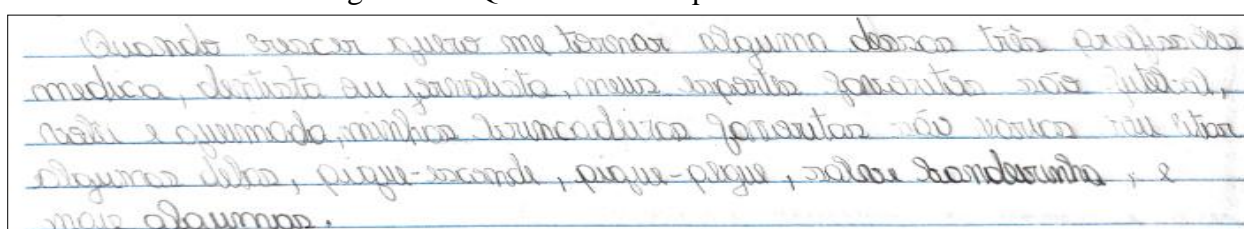 Quando crescer quero me tornar alguma dessas três profissões
medica, dentista ou jornalista, meus esportes favoritos são futebol,
volei e queimada, minhas brincadeiras favoritas são varias vou citar
algumas delas, pique-esconde, pique-pegue, salve bandeirinha, e
mais algumas.